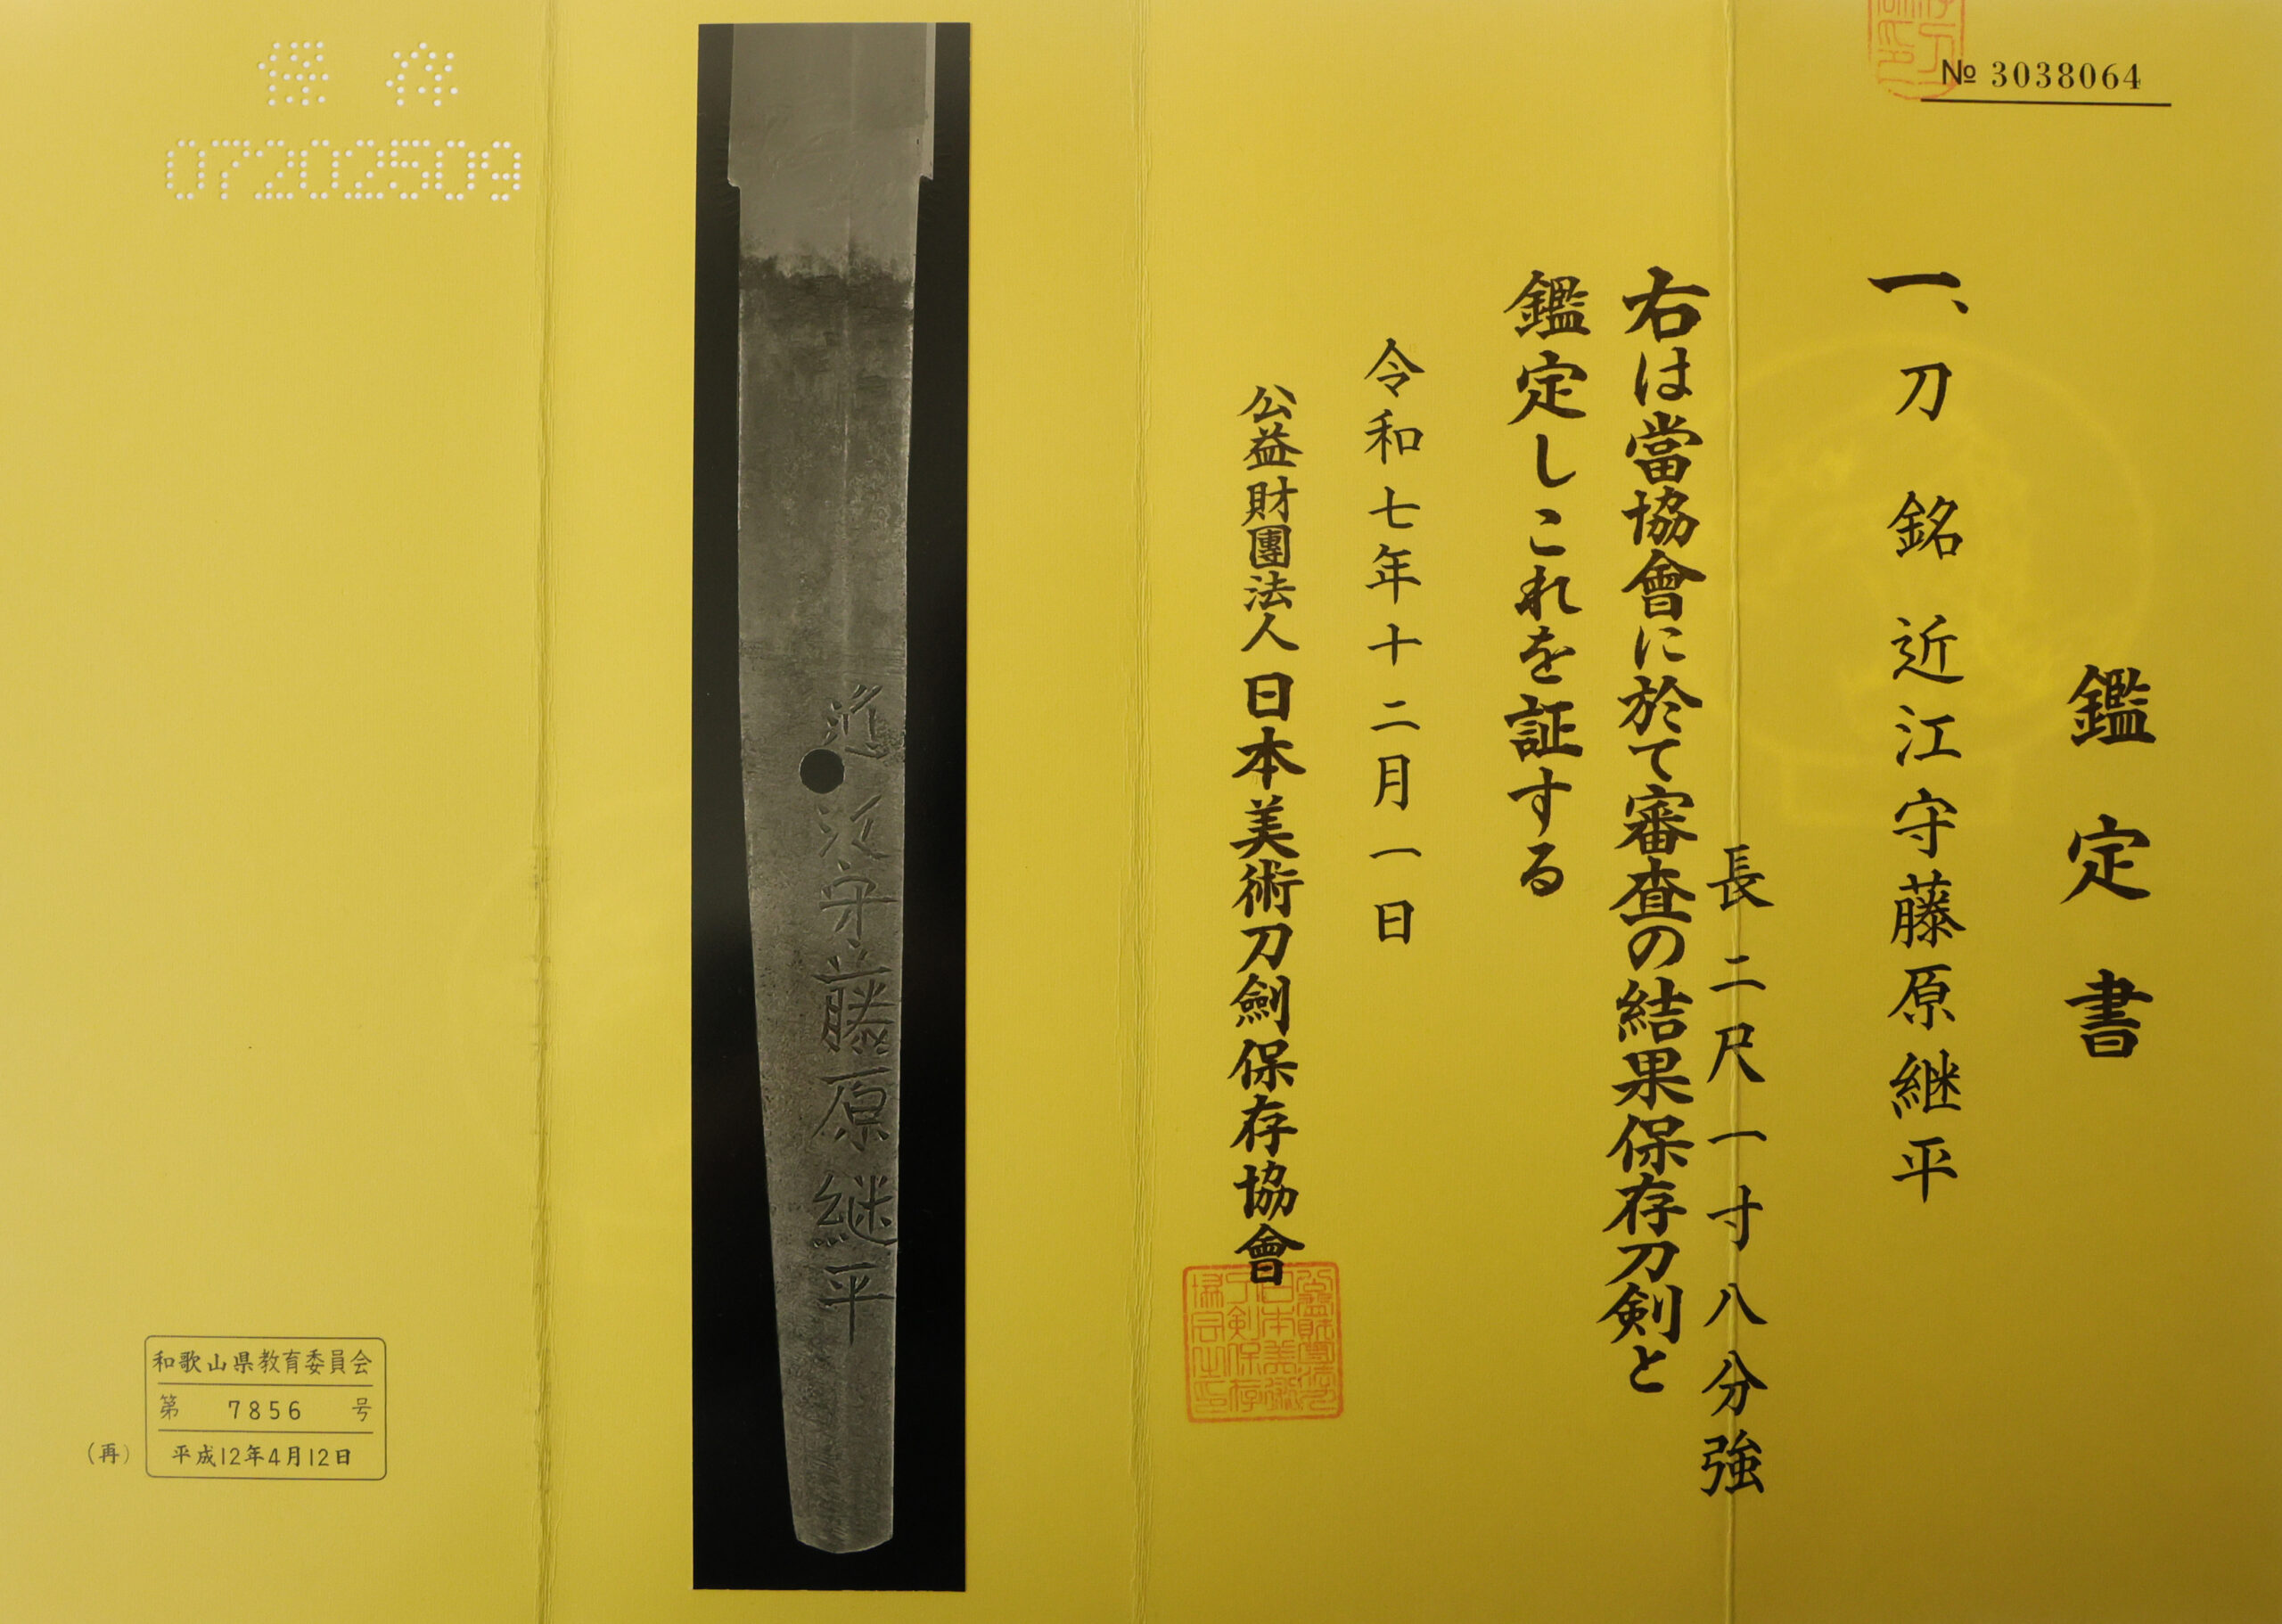 № 3038064
鑑定書
一、刀 銘 近江守藤原継平
長二尺一寸八分強
右は當協會に於て審査の結果保存刀剣と
鑑定しこれを証する
令和七年十二月一日
公益財團法人日本美術刀劍保存協會
近江守藤原継平
保存
07202509
和歌山県教育委員会
第 7856 号
(再) 平成12年4月12日